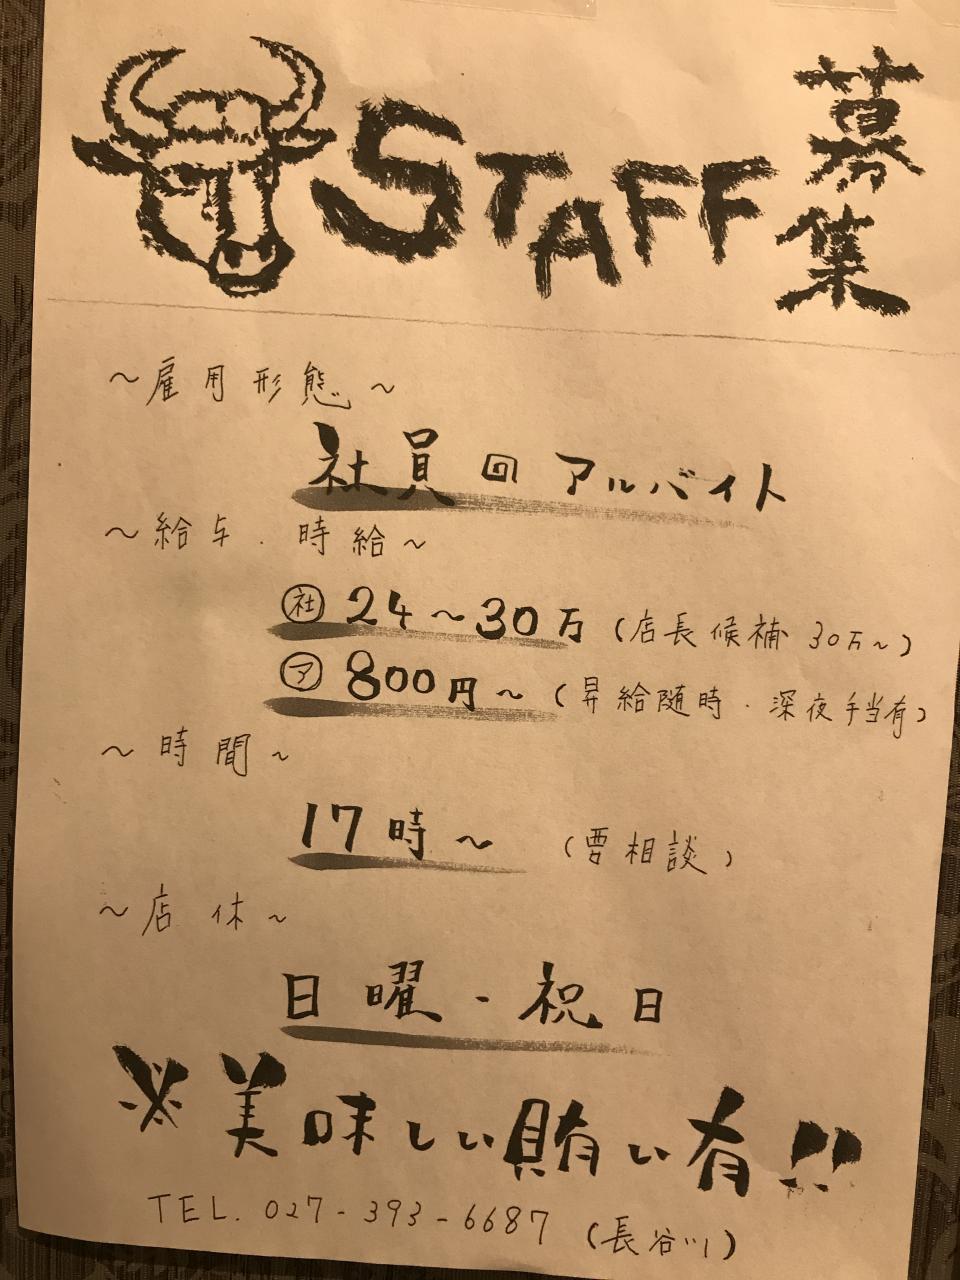 STAFF募集
～雇用形態～
社員 @ アルバイト
～給与・時給～
㊓ 24～30万(店長候補 30万～)
㋐ 800円～(昇給随時・深夜手当有)
～時間～
17時～ (要相談)
～店休～
日曜・祝日
※美味しい賄い有!!
TEL. 027-393-6687 (長谷川)